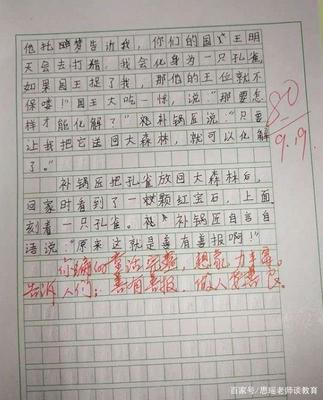 他托梦告诉我,你们的国王明
天会去打猎,我会化身为一只孔雀,
如果国王捉了我,那他的王位就不
保喽!"国王大吃一惊,说:"那要怎
样才能化解?"补锅匠说:"只要
让我把它送回大森林,就可以化解
了。"
补锅匠把孔雀放回大森林后,
回家时看到了一颗红宝石,上面
刻着一只孔雀。补锅匠自言自
语说:"原来这就是善有善报啊!"
80
9.19.
你编的童话完整,想象力丰富。
告诉人们:善有善报,做人要善良。
百家号/思瑶老师谈教育